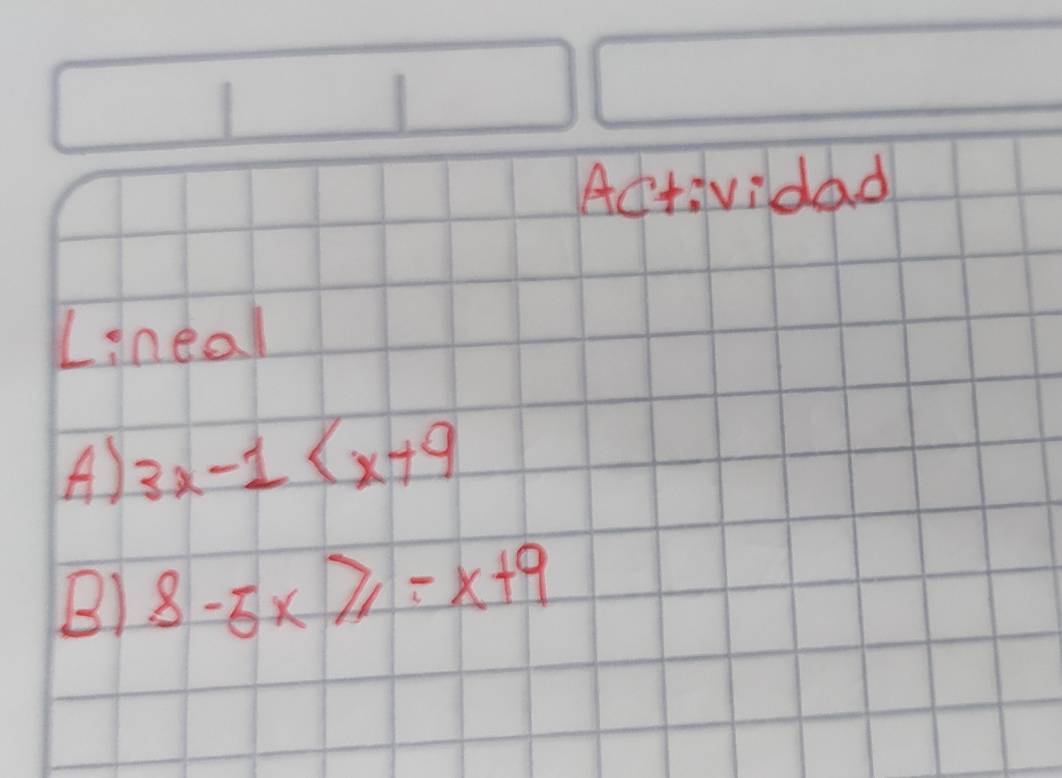 Actividad
Lineal
A) 3x-1 < x+9
B) 8-5x ⩾ -x+9